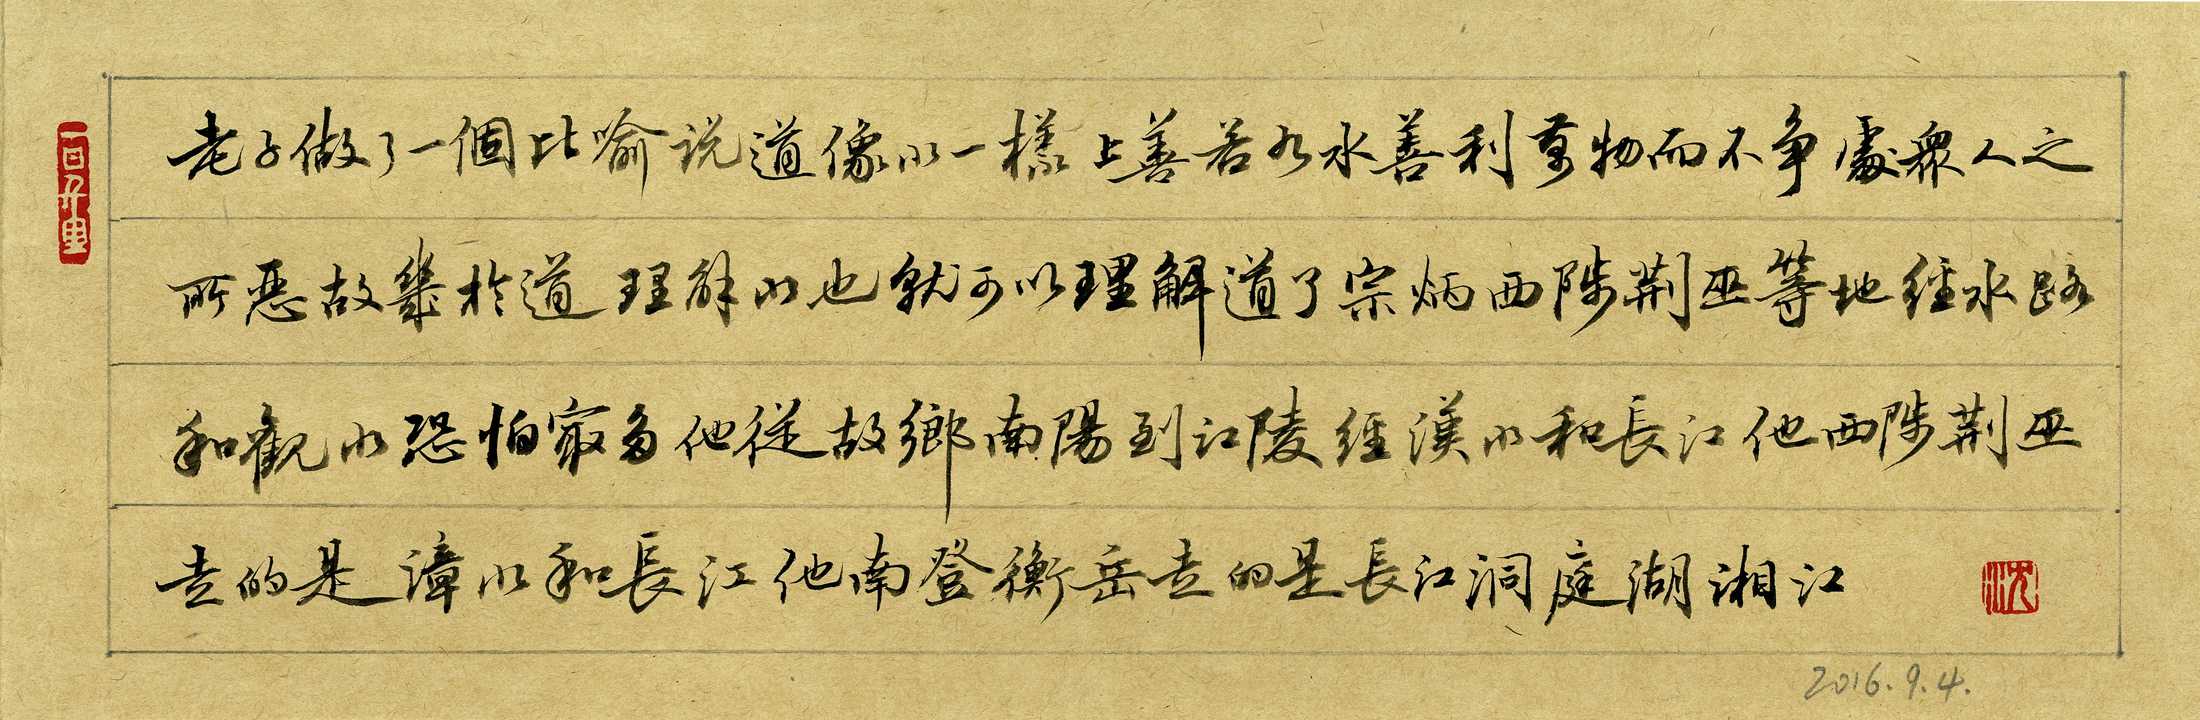 老子做了一個比喻説道像水一樣上善若水水善利萬物而不争處衆人之
所惡故幾於道理解水也就可以理解道了宗炳西陟荆巫等地經水路
和觀水恐怕最多他從故鄉南陽到江陵經漢水和長江他西陟荆巫
走的是漳水和長江他南登衡岳走的是長江洞庭湖湘江
沈
2016.9.4.